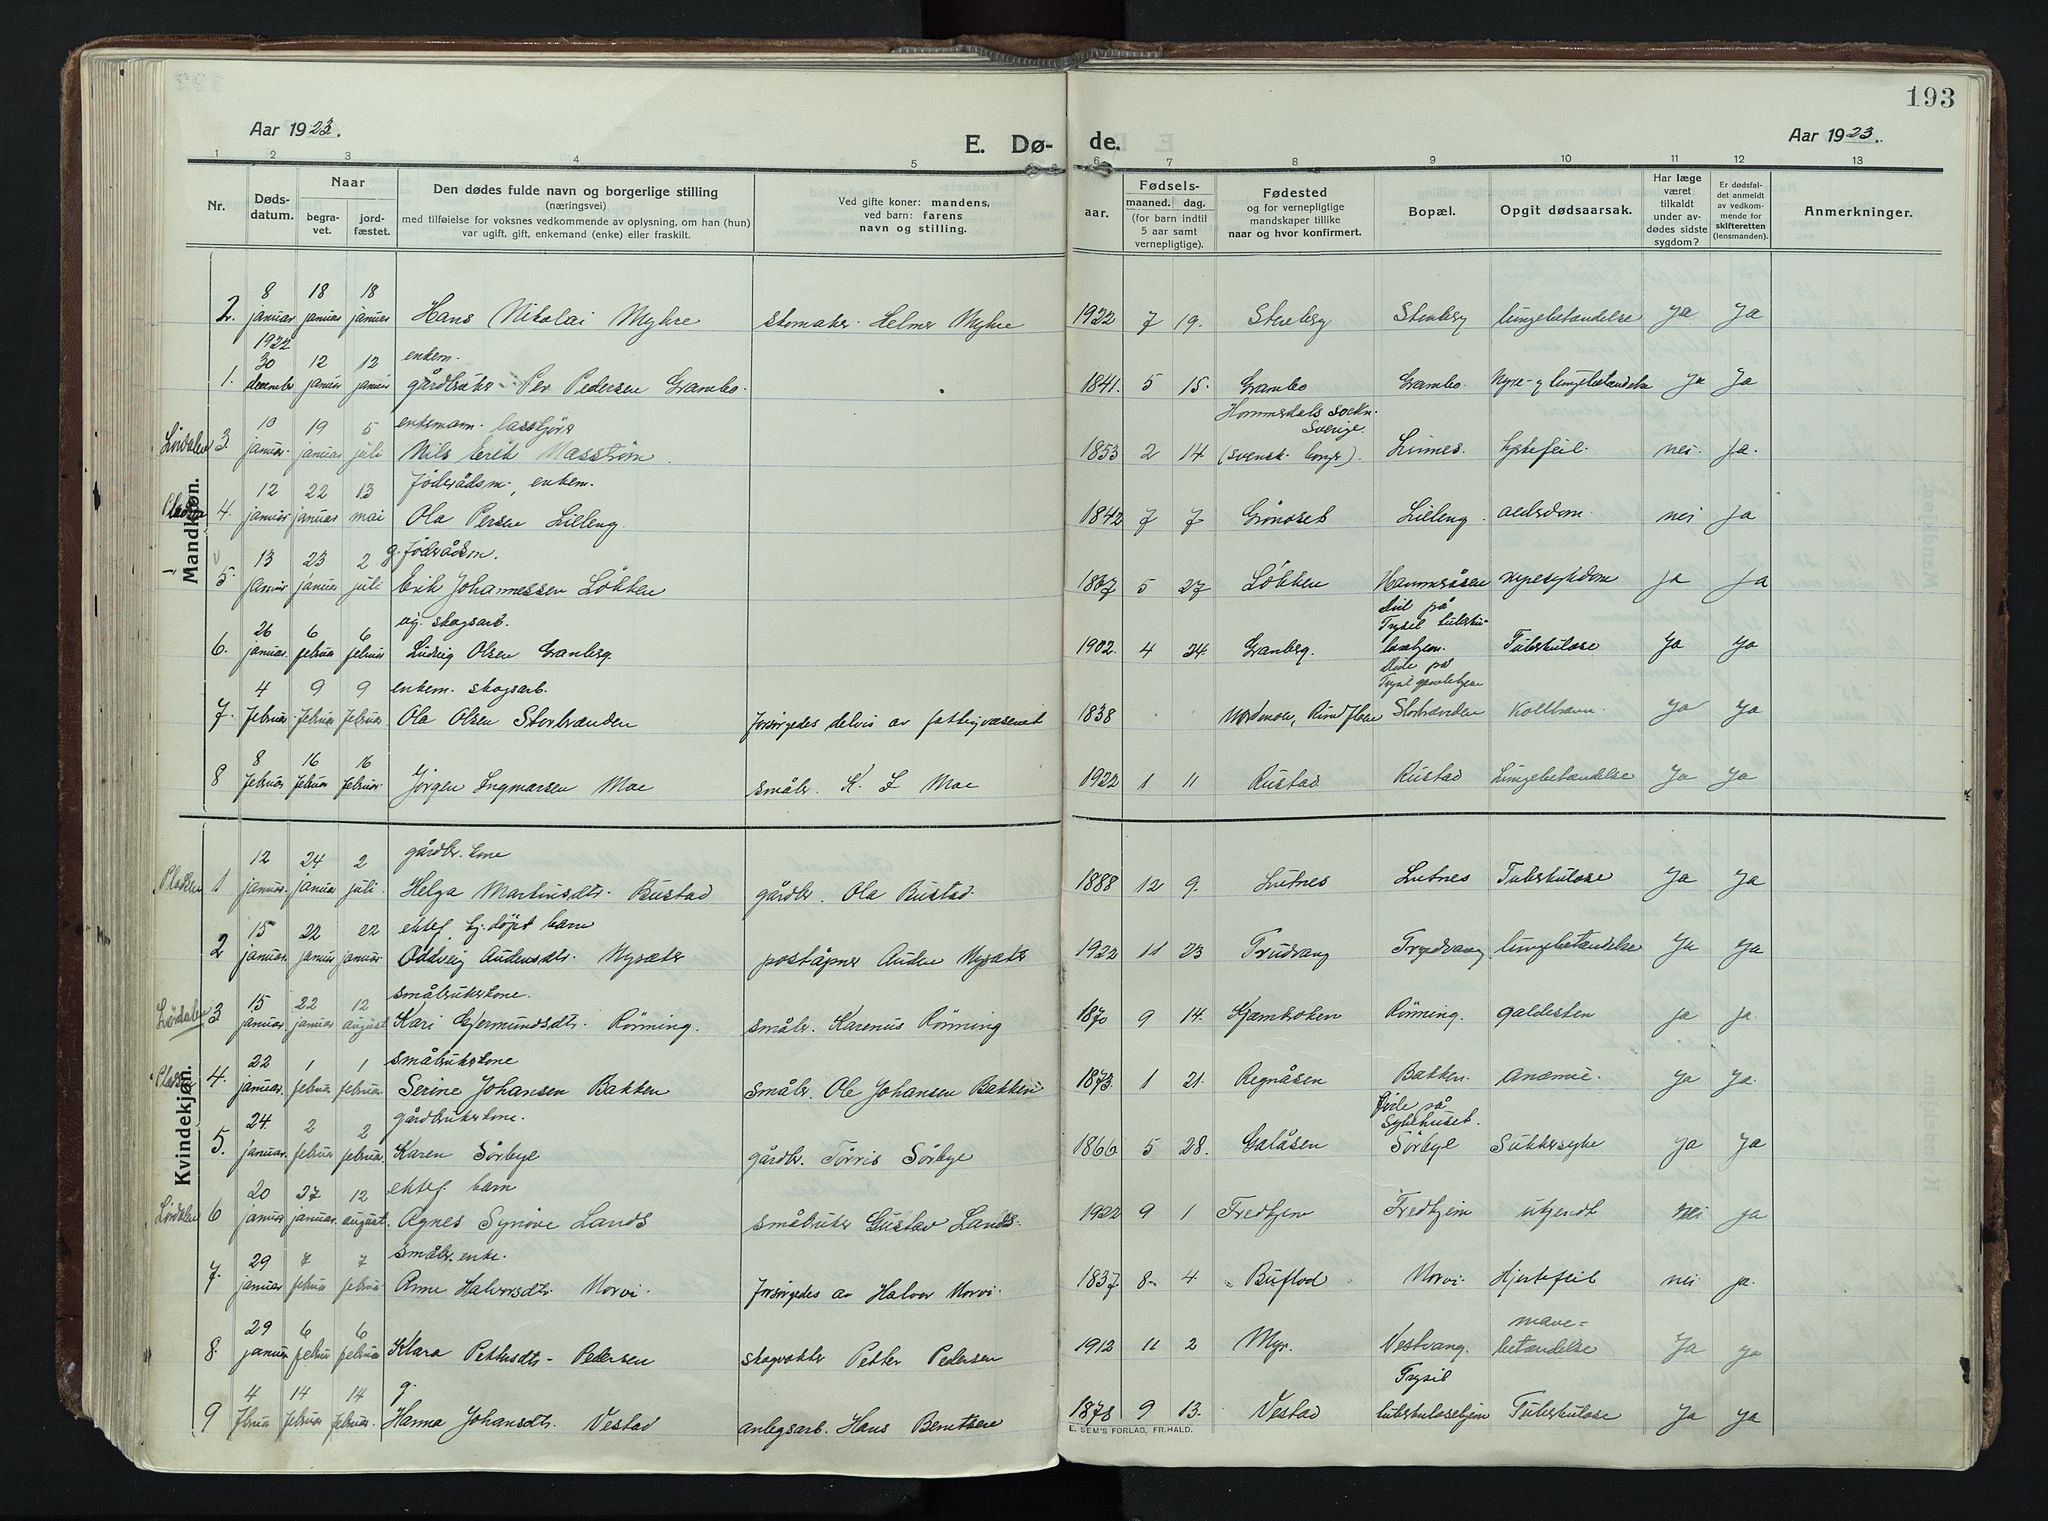 193
Aar 1923.
E. Dø- de.
Aar 1923.
1 2 3 4 5 6 7 8 9 10 11 12 13
Nr.
Døds-datum.
Naar
begra-vet.
jord-fæstet.
Den dødes fulde navn og borgerlige stilling
(næringsvei)
med tilføielse for voksnes vedkommende av oplysning, om han (hun)
var ugift, gift, enkemand (enke) eller fraskilt.
Ved gifte koner: mandens,
ved barn: farens
navn og stilling.
Fødsels-
aar.
maaned.
dag.
(for barn indtil
5 aar samt
vernepligtige).
Fødested
og for vernepligtige
mandskaper tillike
naar og hvor konfirmert.
Bopæl.
Opgit dødsaarsak.
Har læge
været
tilkaldt
under av-
dødes sidste
sygdom?
Er dødsfal-
det anmeldt
av vedkom-
mende for
skifteretten
(lensmanden).
Anmerkninger.
Mandkjøn.
8 18 18
2. januar januar januar Hans Nikolai Myhre skomaker Helmer Myhre 1922 7 19. Stenberg Stenberg lungebetændelse Ja Ja
1922
30 12 12 enkem.
1. december januar januar gårdbruker Per Pedersen Grambo. 1841. 5 15. Grambo Grambo. Nyre- og lungebetændelse Ja Ja
10 19 5 enkemann.
Sverige.
Lørdalen 3. januar januar juli Nils Erik 1853 2 14 (svensk borger). Linnes. hjertefeil. nei. Ja.
12 22 13 føderådsm., enkem.
Pladsen 4. januar januar mai Ola Persen Lilleng. 1842 7 7 Grønoset Lilleng. aldersdom. nei Ja
13 23 2 g. føderådsm.
5. januar januar juli Erik Johannessen Løkken 1867 5 27 Løkken Hammeråsen nyresykdom Ja Ja
26 6 6 ug. skogsarb.
Død på
Trysil tuberku-
6. januar. februar februar Ludvig Olsen Granberg. 1902. 4 24. Granberg. losehjem. Tuberkulose Ja Ja
4 9 9 enkem. skogsarb.
Døde på
Trysil gamlehjem
7. februar februar februar Ola Olsen Storbrænden forsørgedes delvis av fattigvæsenet 1838 Storbrænden Koldbrann. Ja Ja
8 16 16
8 februar februar februar. Jørgen Ingmarsen Moe småbr. K. I. Moe 1922 1 11 Rustad. Rustad Lungebetændelse Ja Ja
Kvindekjøn.
12 24 2 gårdbr. kone
Pladsen 1 januar. januar juli. Helga Martinusdtr. Bustad gårdbr. Ola Bustad 1888 12 9. Lutnes Lutnes Tuberkulose Ja Ja
15 22 22 ektef. hj. døpt barn
2 januar. januar januar Oddveig Audensdtr. Nysæter poståpner Auden Nysæter 1922 11 23 Trudvang Trudvang lungebetændelse Ja Ja
15 22 12 småbrukerkone.
Lørdalen 3 januar januar august Kari Gjermundsdtr. Rønning. småbr. Karenus Rønning 1870 9 14. Kjærnkroken Rønning. galdesten ja ja.
22 1 1 småbrukerkone
Pladsen 4. januar. februar februar. Serine Johansen Bakken småbr. Ole Johansen Bakken 1873. 1 21. Regnåsen Bakken. Anæmie. Ja Ja.
24. 2 2 gårdbrukerkone.
Døde på
Sykehuset.
5. januar. februar februar. Karen Sørbye gårdbr. Tørris Sørbye 1866. 5 28. Galåsen Sørbye Sukkersyke Ja Ja
20 27 12 ektef. barn
Lørdalen 6 januar januar. august. Agnes Synøve Lands småbruker Gustav Lands. 1922 9 1 Fredhjem Fredhjem ukjendt nei ja
29 7 7 småbr. enke.
7. januar februar februar. Anne Halvorsdtr. Morvi. forsørgedes av Halvor Morvi. 1837. 8 4 Buflod Morvi. Hjertefeil nei ja.
29 6 6
mave=
8. januar februar februar Klara Pettersdtr. Pedersen skogvokter Petter Pedersen 1912 11 2 Myr. Vestvang. betændelse Ja ja
4 14 14 g.
Trysil
9 februar februar februar. Hanna Johansdtr. Vestad anlegsarb. Hans Berntsen 1878 9 13. Vestad tuberkulosehjem Tuberkulose Ja ja
E. SEM'S FORLAG, FR.HALD.